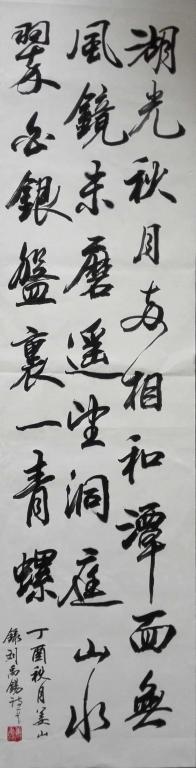 湖光秋月兩相和潭面無
風鏡未磨遥望洞庭山水
翠白銀盤裏一青螺
丁酉秋月姜山
錄刘禹锡詩